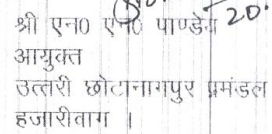 श्री एन0 एन0 पाण्डेय 20
आयुक्त
उत्तरी छोटानागपुर प्रमंडल
हजारीबाग ।